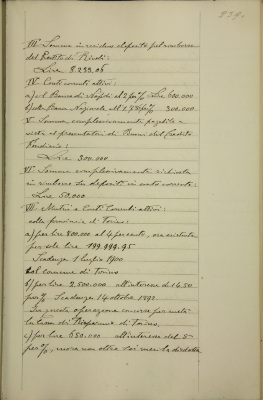 259.
III. Somma in residuo deposito pel rimborso
del Prestito di Rivoli:
Lire 8.233,05
IV. Conti correnti attivi:
a) il Banco di Napoli al 2 per % Lire 600.000
b) alla Banca Nazionale all' 1 7/8 per % 300.000
V. Somma complessivamente pagabile a
vista ai presentatori di Buoni del Credito
Fondiario:
Lire 300.000
VI. Somma complessivamente richiesta
in rimborso su depositi in conto corrente:
Lire 50.000
VII. Mutui e Conti Correnti attivi:
colla provincia di Torino:
a) per lire 800.000 al 4 per cento, ora esistente
per sole lire 199.999.95
Scadenza 1 luglio 1900
col comune di Torino
b) per lire 2.500.000 all'interesse del 4.50
per % Scadenza 14 ottobre 1892.
In questa operazione concorre per metà
la Cassa di Risparmio di Torino,
c) per lire 650.000 all'interesse del 5
per %, mora non oltre sei mesi la disdetta